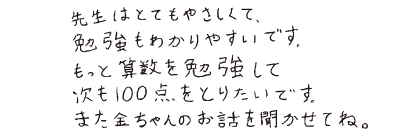 先生はとてもやさしくて、
勉強もわかりやすいです。
もっと算数を勉強して
次も100点をとりたいです。
また金ちゃんのお話を聞かせてね。